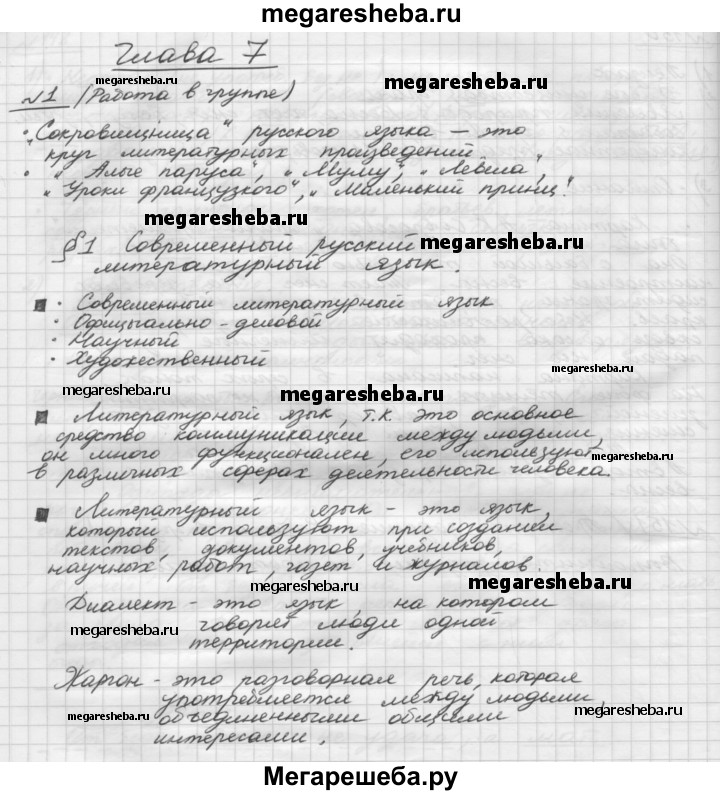 megaresheba.ru
Глава 7
megaresheba.ru
megaresheba.ru
№1 (Работа в группе)
• „Сокровищница" русского языка – это
круг литературных произведений
• „Алые паруса", „Муму", „Левша",
„Уроки французкого", „Маленький принц".
megaresheba.ru
§1 Современный русский megaresheba.ru
литературный язык.
• Современный литературный язык
• Официально-деловой
• Научный
• Художественный
megaresheba.ru
megaresheba.ru
megaresheba.ru
Литературный язык, т.к. это основное
средство коммуникации между людьми,
он много функционален, его используют
в различных сферах деятельности человека.
megaresheba.ru
megaresheba.ru
Литературный язык – это язык,
который используют при создании
текстов, документов, учебников,
научных работ, газет и журналов.
megaresheba.ru
megaresheba.ru
Диалект – это язык, на котором
говорят люди одной
территории.
megaresheba.ru
Жаргон – это разговорная речь, которая
употребляется между людьми,
объединенными общими
интересами.
megaresheba.ru
megaresheba.ru
Мегарешеба.ру